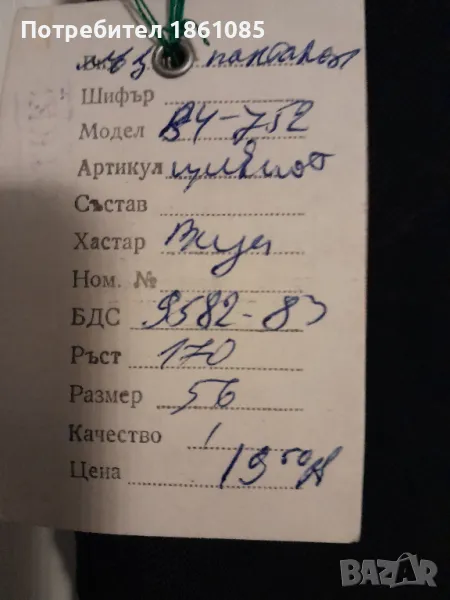 Потребител 1861085
Вид мъж панталон
Шифър
Модел В4-752
Артикул
Състав
Хастар Виза
Ном. №
БДС 9582-83
Ръст 170
Размер 56
Качество 1
Цена 19 50
BAZAR